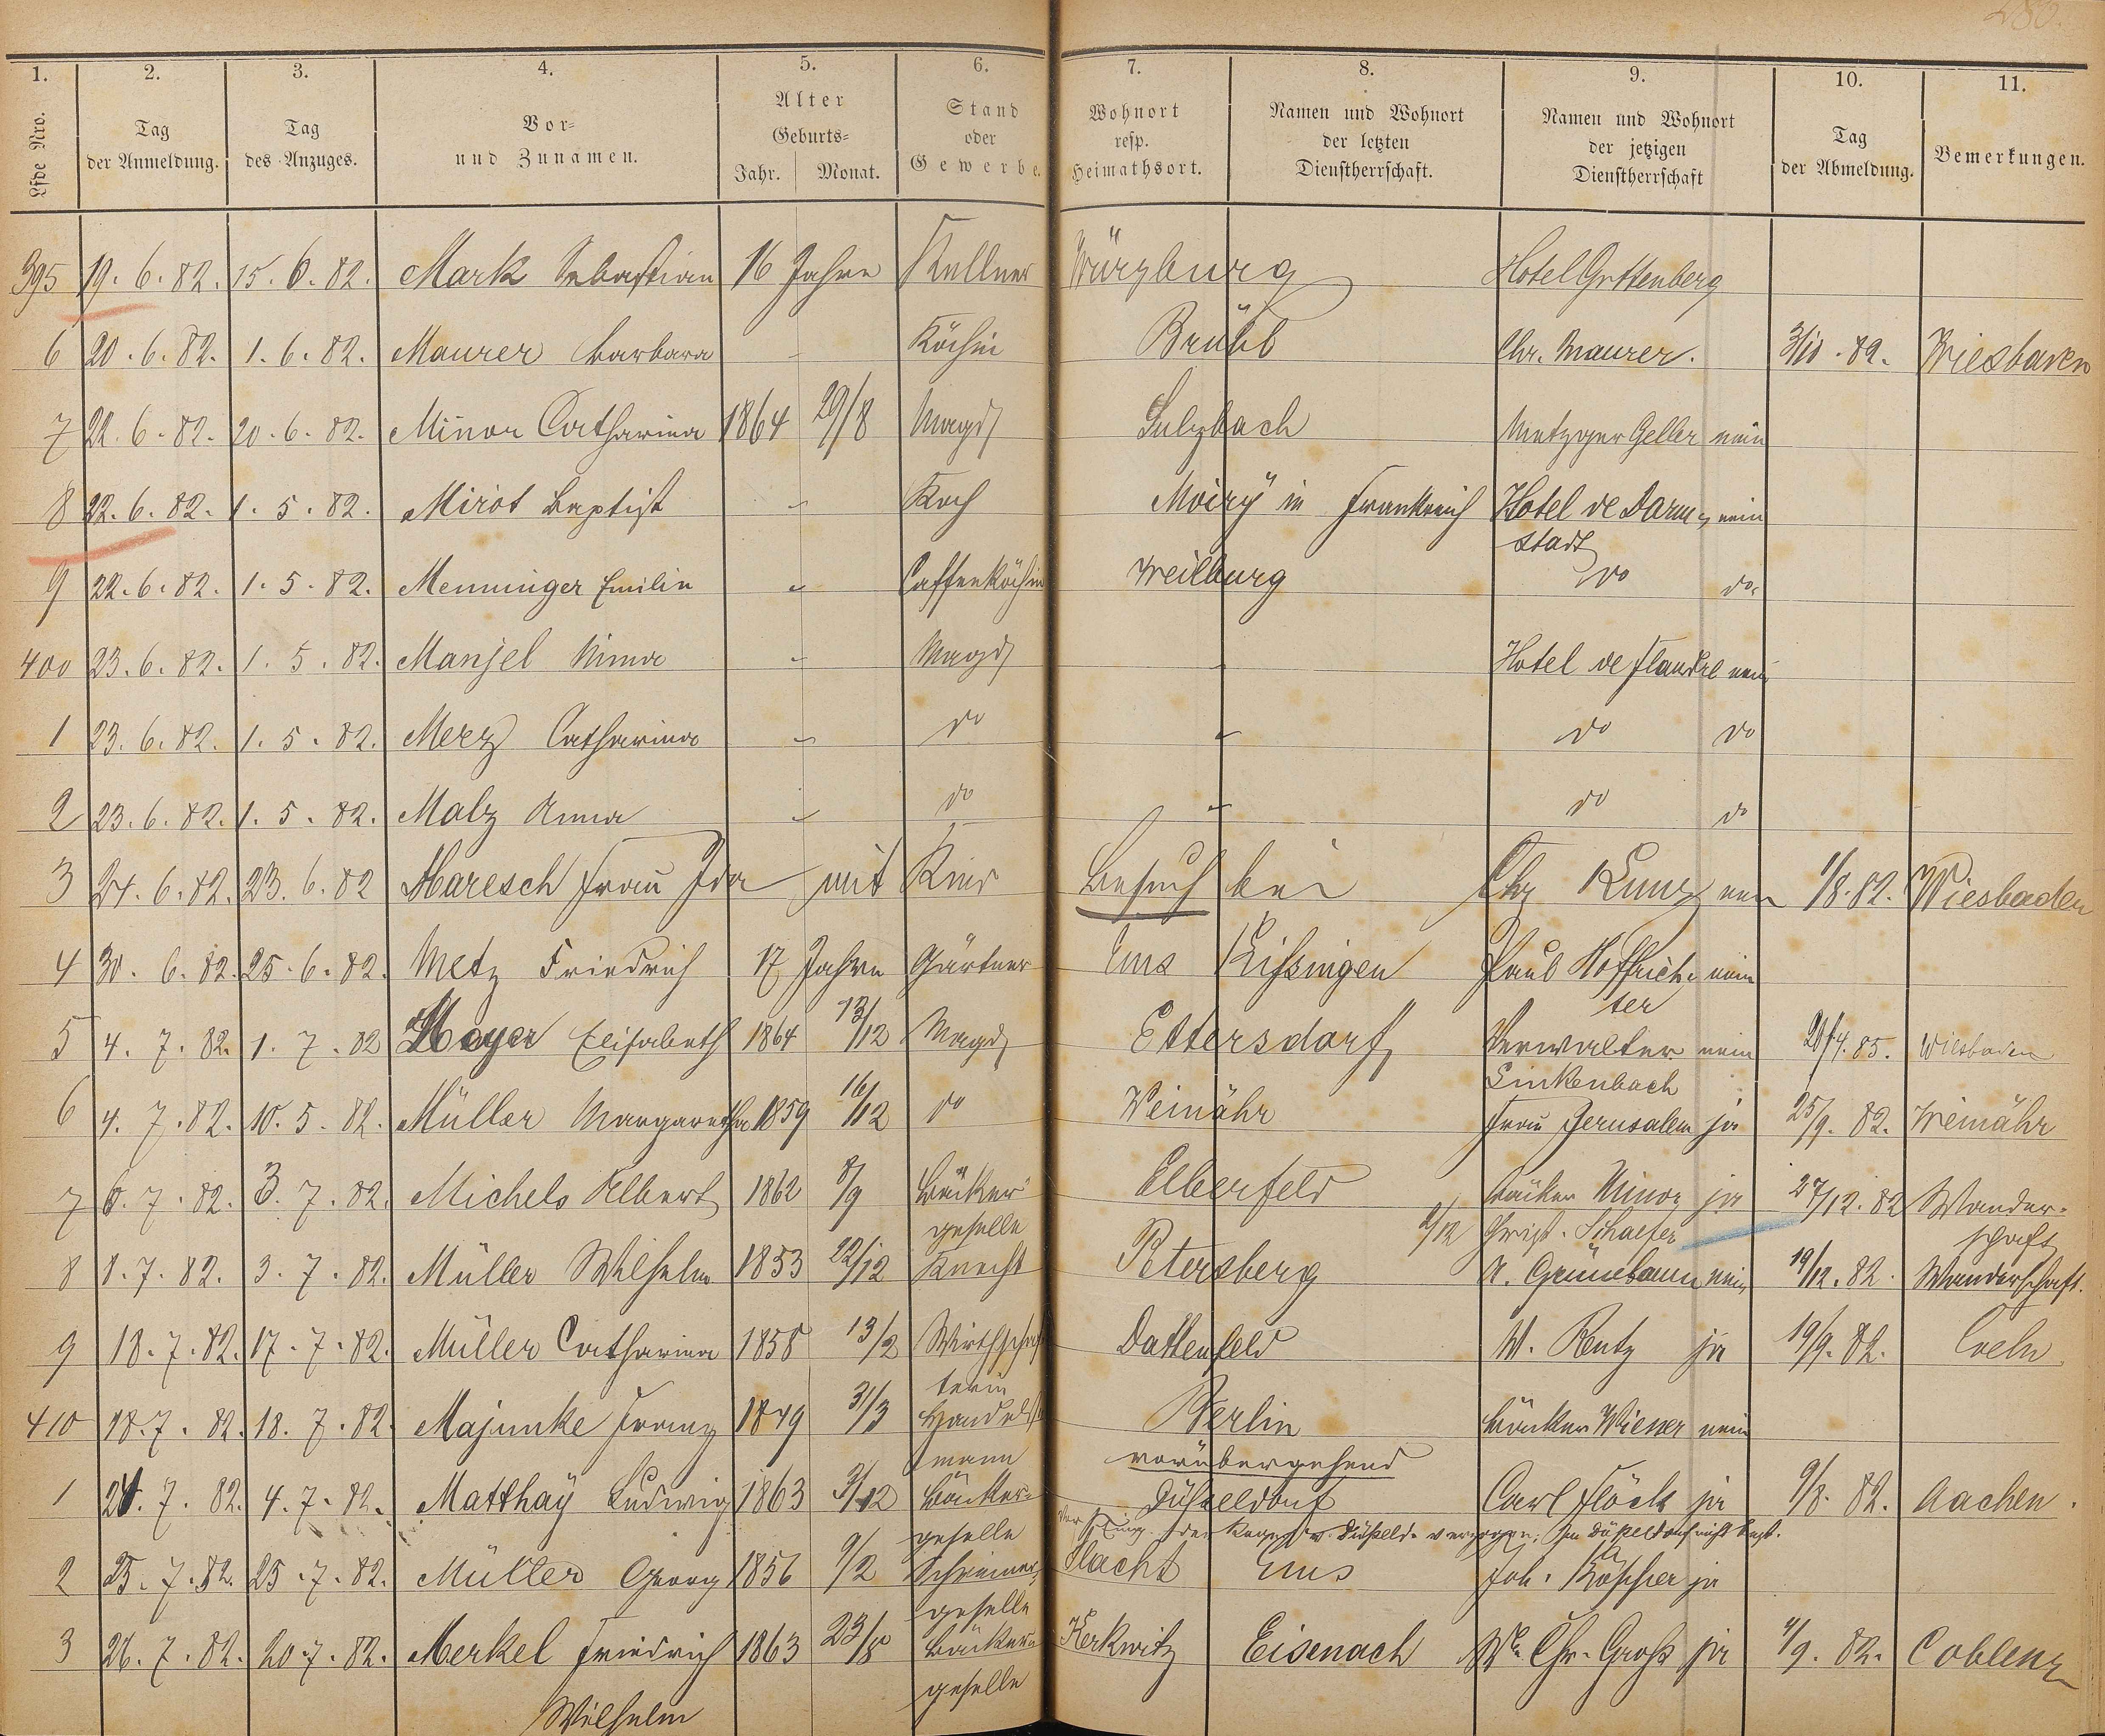 1. 2. 3. 4. 5. 6. 7. 8. 9. 10. 11.
Lfde Nro. Tag der Anmeldung. Tag des Anzuges. Vor- und Zunamen. Alter Geburts- Jahr. Monat. Stand oder Gewerbe. Wohnort resp. Heimathsort. Namen und Wohnort der letzten Dienstherrschaft. Namen und Wohnort der jetzigen Dienstherrschaft Tag der Abmeldung. Bemerkungen.
395 19. 6. 82. 15. 6. 82. Mark Sebastian 16 Jahre Kellner Würzburg Hotel Guttenberg
6 20. 6. 82. 1. 6. 82. Maurer Barbara - Köchin Brühl Chr. Maurer. Wiesbaden
7 22. 6. 82. 20. 6. 82. Minor Catharina 1864 29/8 Magd Sulzbach Metzger Geller nein
8 22. 6. 82. 1. 5. 82. Mirot Baptist - Koch Moiry in Frankreich Hotel de Darm- nein
stadt
9 22. 6. 82. 1. 5. 82. Menninger Emilie - Caffeeköchin Weilburg do do.
400 23. 6. 82. 1. 5. 82. Manjel Nina - Magd - Hotel de Flandre nein
1 23. 6. 82. 1. 5. 82. Merz Catharina - do - do do
2 23. 6. 82. 1. 5. 82. Malz Anna - do - do do
3 24. 6. 82. 23. 6. 82 Maresch Frau Ida mit Kind Besuch bei Chr Kunz nein 1/8. 82. Wiesbaden
4 30. 6. 82. 25. 6. 82. Metz Friedrich 17 Jahren Gärtner Ems Kissingen Paul Hoffrich- nein
ter
5 4. 7. 82. 1. 7. 82 Meyer Elisabeth 1864 13/12 Magd Ettersdorf Verwalter nein 20/4. 85. Wiesbaden
Linkenbach
6 4. 7. 82. 10. 5. 82. Müller Margaretha 1859 16/12 do Weinähr Frau Jerusalem ja 25/9. 82. Weinähr
7 6. 7. 82. 3. 7. 82. Michels Albert 1862 8/9 Bäcker- Elberfeld Bäcker Minor ja 27/12. 82 Wander-
geselle Schaefer schaft
8 8. 7. 82. 3. 7. 82. Müller Wilhelm 1853 22/12 Knecht Petersberg A. Grünebaum nein 19/12. 82. Wanderschaft.
9 18. 7. 82. 17. 7. 82. Müller Catharina 1858 13/2 Wirthschaf Dattenfeld W. Rentz ja 19/9. 82. Coeln
terin
410 18. 7. 82. 18. 7. 82. Majunke Franz 1849 31/3 Handels Berlin Bäcker Wiener nein
mann vorübergehend
1 24. 7. 82. 4. 7. 82. Matthaÿ Ludwig 1863 3/12 Bäcker- Düsseldorf Carl Flöck ja 9/8. 82. Aachen.
geselle
2 25. 7. 82. 25. 7. 82. Müller Georg 1856 9/2 Schreiner Ems Joh. ja
geselle
3 26. 7. 82. 20. 7. 82. Merkel Friedrich 1863 Bäcker- Kerkwitz Eisenach Ww Chr. Groß ja 4/9. 82. Coblenz
Wilhelm geselle